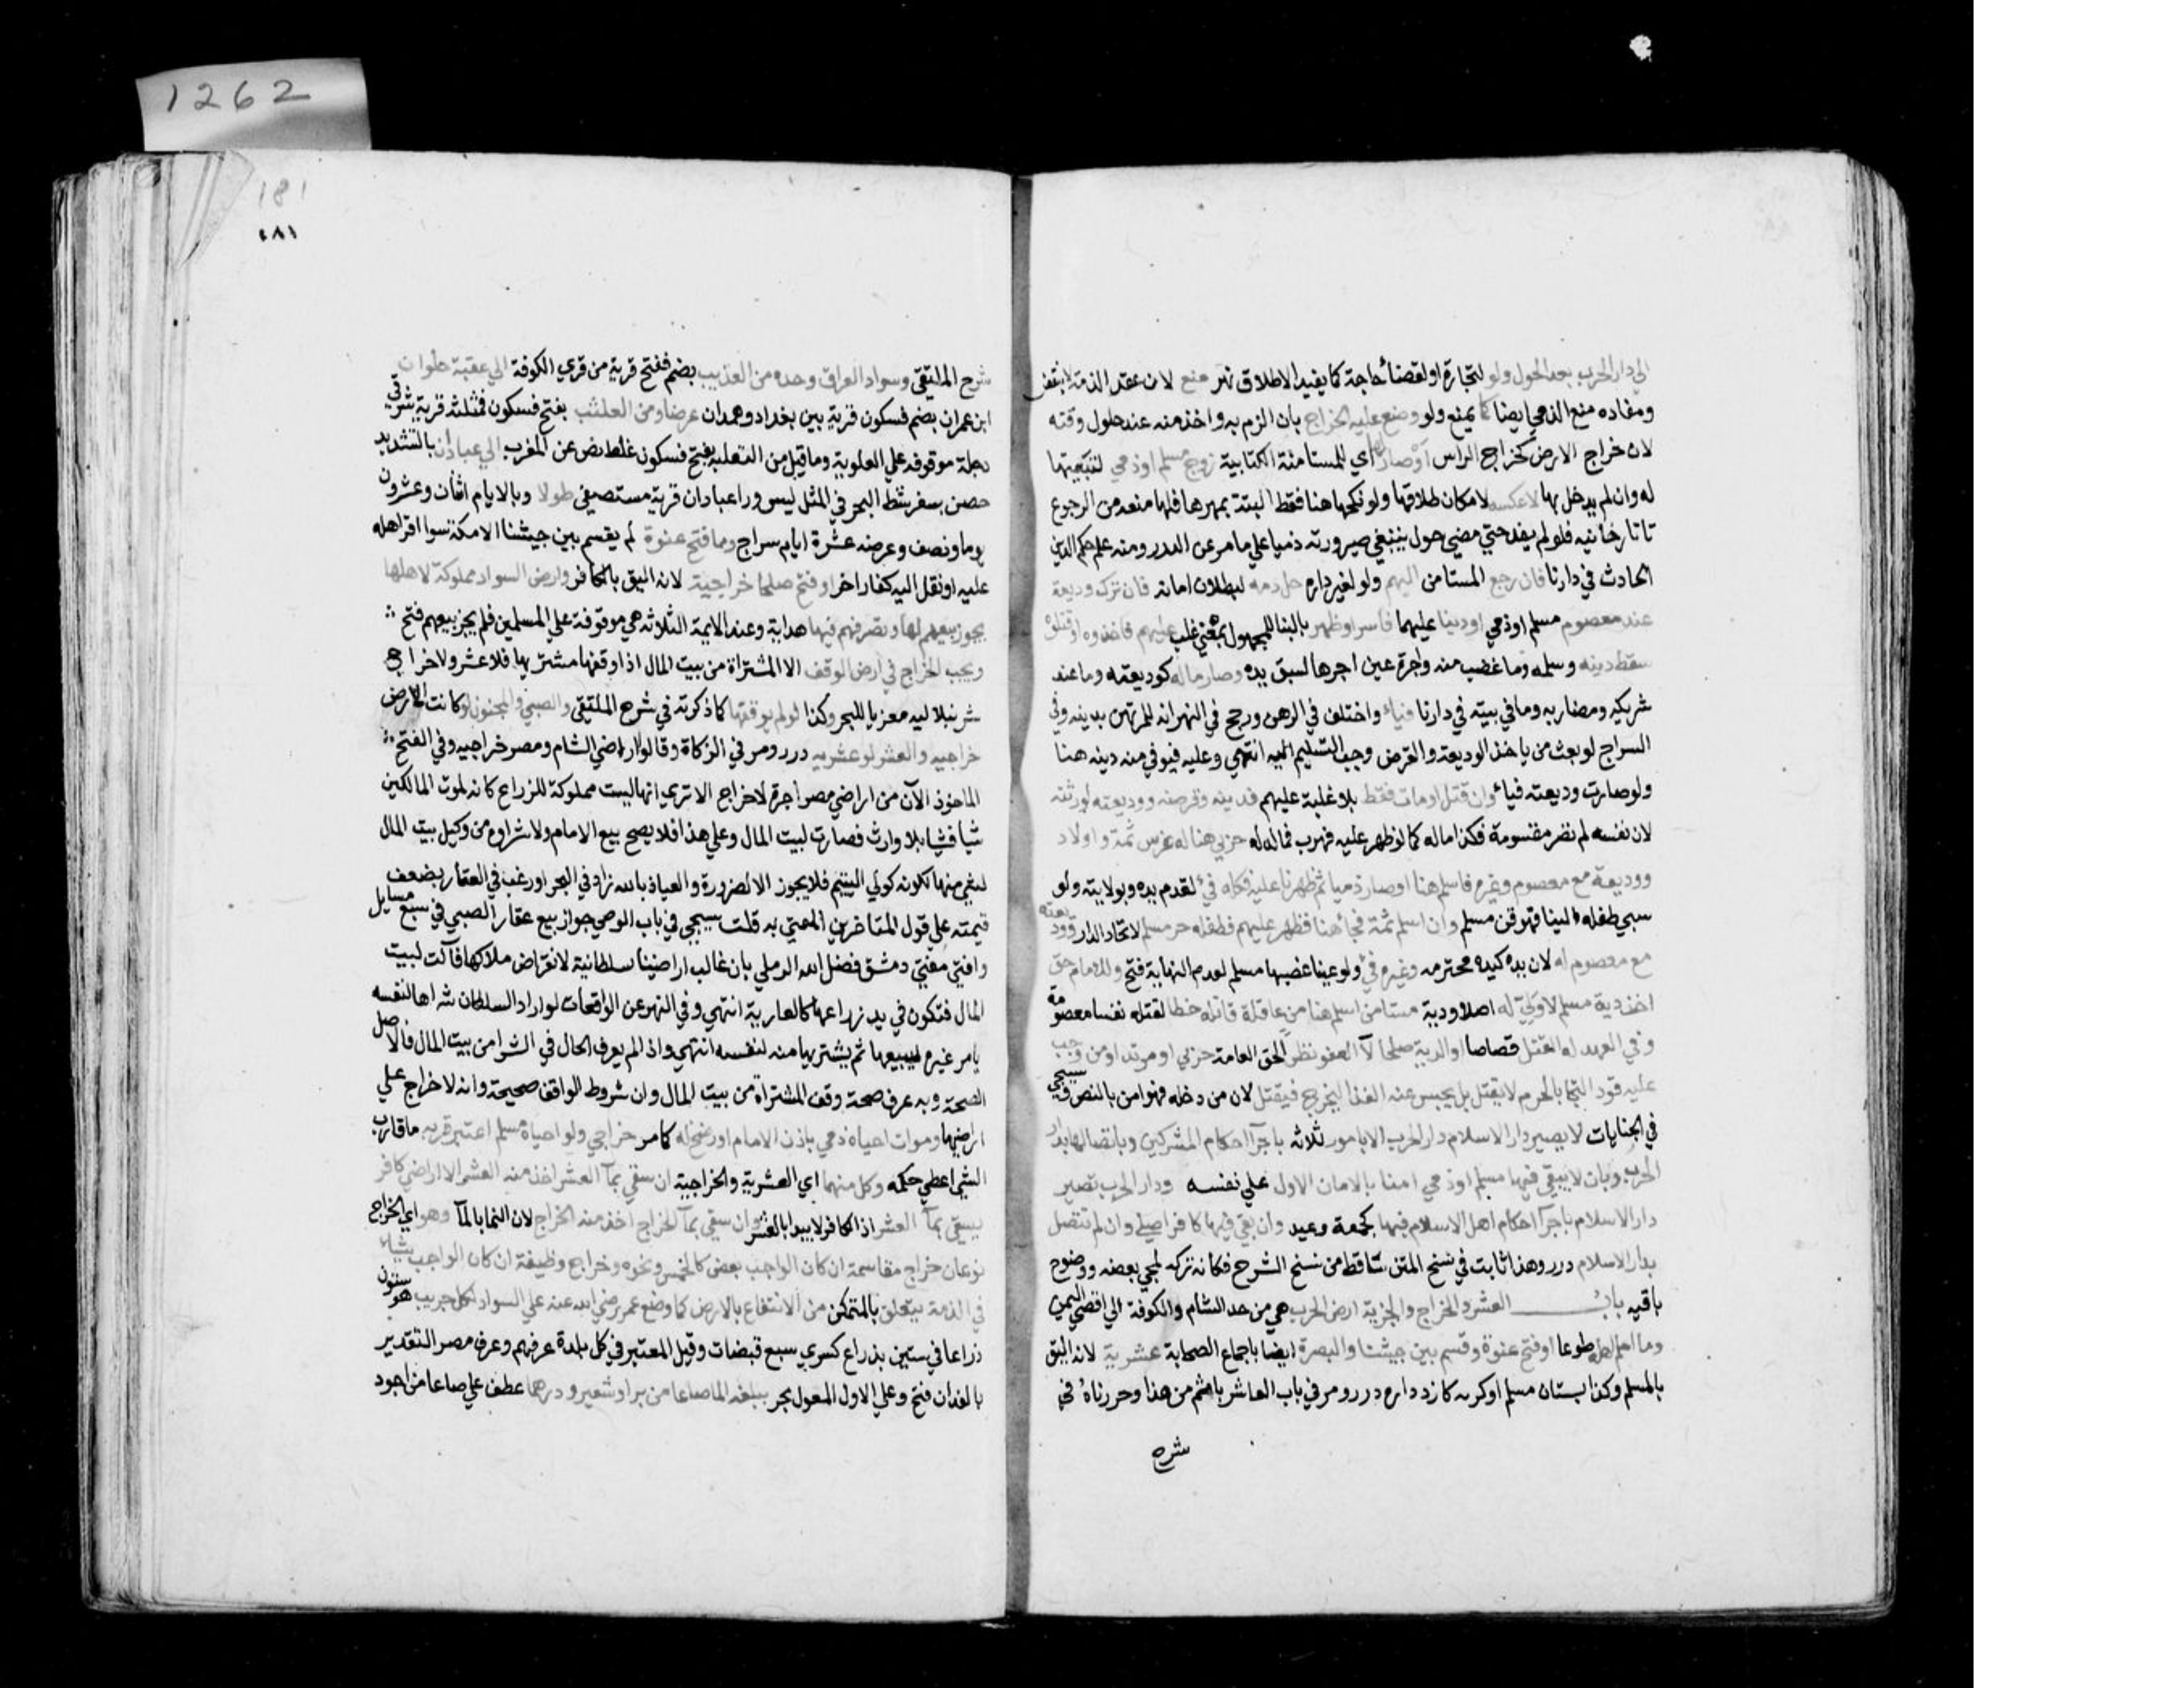 الي دار الحرب بعد الحول ولو لتجارة او لقضاء حاجة كما يفيد الاطلاق نهر منع لان عقد الذمة لا ينتقض
ومفاده منع الذمي ايضا كما يمنع ولو وضع عليه الخراج بان الزم به واخذ منه عند حلول وقته
لان خراج الارض كخراج الراس او صار لها اي المستامنة الكتابية زوج مسلم او ذمي لتبعيتها
له وان لم يدخل بها لا عكسه لامكان طلاقها ولو نكحها هنا فقط البتة بمهرها فلها منعه من الرجوع
تاتارخانيه فلو لم يفد حتي مضي حول ينبغي صيرورته ذميا علي ما مر عن الدرر ومنه علم حكم الدين
الحادث في دارنا فان رجع المستامن اليهم ولو لغير داره حل دمه لبطلان امانه فان ترك وديعة
عند معصوم مسلم او ذمي او دينا عليهما فاسر او ظهر بالبنا للمجهول بمعني غلب عليهم فاخذوه او قتلوه
سقط دينه وسلمه وما غضب منه واجرة عين اجرها لسبق يده وصار ماله كوديعته وما عند
شريكه ومضاربه وما في بيته في دارنا فياء واختلف في الرهن ورجح في النهر انه للمرتهن بدينه وفي
السراج لو بعث من ياخذ الوديعة والقرض وجب التسليم اليه انتهي وعليه فيوفي منه دينه هنا
ولو صارت وديعته فياء وان قتل او مات فقط بلا غلبة عليهم فدينه وقرضه ووديعته لورثته
لان نفسه لم تصر مغنومة فكذا ماله كما لو ظهر عليه فهرب فماله له حربي هنا له عرس ثمة واولاد
ووديعة مع معصوم وغيره فاسلم هنا او صار ذميا ثم ظهرنا عليه فكله فيء لعدم يده وبولايته ولو
سبي طفله الينا فهو قن مسلم وان اسلم ثمة فجاء هنا فظهر عليهم فطفله حر مسلم لاتحاد الدار ووديعته
مع معصوم له لان يده كيده محترمه وغيره فيء ولو عينا غصبها مسلم لعدم النيابة فتح وللامام حق
اخذ دية مسلم لا ولي له اصلا ودية مستامن اسلم هنا من عاقلة قاتله خطا لقتله نفسا معصومة
وفي العمد له القتل قصاصا او الدية صلحا لا العفو نظرا لحق العامة حربي او مرتد او من وجب
عليه قود التجا بالحرم لا يقتل بل يحبس عنه الغذا ليخرج فيقتل لان من دخله فهو امن بالنص وسيجي
في الجنايات لا يصير دار الاسلام دار الحرب الا بامور ثلاثه باجرآ احكام المشركين وباتصالها بدار
الحرب وبان لا يبقي فيها مسلم او ذمي امنا بالامان الاول علي نفسه ودار الحرب تصير
دار الاسلام باجرآ احكام اهل الاسلام فيها كجمعة وعيد وان بقي فيها كافر اصلي وان لم تتصل
بدار الاسلام درر وهذا ثابت في نسخ المتن ساقط من نسخ الشرح فكانه تركه لمجي بعضه ووضوح
باقيه باب العشر والخراج والجزية ارض العرب هي من حد الشام والكوفة الي اقصي اليمن
وما اسلم اهله طوعا او فتح عنوة وقسم بين جيشنا والبصرة ايضا باجماع الصحابة عشرية لانه اليق
بالمسلم وكذا بستان مسلم او كرمه كان داره درر ومر في باب العاشر باتم من هذا وحررناه في
شرح
1262
181
١٨١
شرح الملتقي وسواد العراق وحده من العذيب بضم ففتح قرية من قري الكوفة الي عقبة حلوان
ابن عمران بضم فسكون قرية بين بغداد وهمدان عرضا ومن العلث بفتح فسكون فمثلثه قرية شرقي
دجلة موقوفه علي العلوية وما قيل من الثعلبة بفتح فسكون غلط نص عن المغرب الي عبادان بالتشديد
حصن صغير بشط البحر في المثل ليس ورا عبادان قرية مستصفي طولا وبالايام اثنان وعشرون
يوما ونصف وعرضه عشرة ايام سراج وما فتح عنوة لم يقسم بين جيشنا الا مكة سوا اقر اهله
عليه او نقل اليه كفار اخر او فتح صلحا خراجية لانه اليق بالكافر وارض السواد مملوكة لاهلها
يجوز بيعهم لها وتصرفهم فيها هداية وعند الايمة الثلاثه هي موقوفة علي المسلمين فلم يجز بيعهم فتح
ويجب الخراج في ارض الوقف الا المشتراة من بيت المال اذا وقفها مشتريها فلا عشر ولا خراج
شرنبلاليه معزيا للبحر وكذا لو لم يوقفها كما ذكرته في شرح الملتقي والصبي والمجنون لو كانت الارض
خراجيه والعشر لو عشريه درر ومر في الزكاة وقالوا اراضي الشام ومصر خراجيه وفي الفتح
الماخوذ الآن من اراضي مصر اجرة لا خراج الا تري انها ليست مملوكة للزراع كانه لموت المالكين
شيا فشيا بلا وارث فصارت لبيت المال وعلي هذا فلا يصح بيع الامام ولا شراوه من وكيل بيت المال
لشي منها لكونه كولي اليتيم فلا يجوز الا لضرورة والعياذ بالله زاد في البحر او رغب في العقار بضعف
قيمته علي قول المتاخرين المفتي به قلت سيجي في باب الوصي جواز بيع عقار الصبي في سبع مسايل
وافتي مفتي دمشق فضل الله الرملي بان غالب اراضينا سلطانية لانقراض ملاكها فآلت لبيت
المال فتكون في يد زراعها كالعارية انتهي وفي النهر عن الواقعات لو اراد السلطان شراها لنفسه
يامر غيره ليبيعها ثم يشتريها منه لنفسه انتهي واذا لم يعرف الحال في الشرا من بيت المال فالاصل
الصحة وبه عرف صحة وقف المشتراة من بيت المال وان شروط الواقف صحيحة وانه لا خراج علي
اراضيها وموات احياه ذمي باذن الامام او رضخ له كما مر خراجي ولو احياه مسلم اعتبر قربه ما قارب
الشي اعطي حكمه وكل منهما اي العشرية والخراجية ان سقي بمآ العشر اخذ منه العشر الا اراضي كافر
يسقي بمآ العشر اذ الكافر لا يبدا بالعشر وان سقي بمآ الخراج اخذ منه الخراج لان النما بالمآ وهو اي الخراج
نوعان خراج مقاسمة ان كان الواجب بعض كالخمس ونحوه وخراج وظيفة ان كان الواجب شياء
في الذمة يتعلق بالتمكن من الانتفاع بالارض كما وضع عمر رضي الله عنه علي السواد لكل جريب هو ستون
ذراعا في ستين بذراع كسري سبع قبضات وقيل المعتبر في كل بلدة عرفهم وعرف مصر التقدير
بالفدان فتح وعلي الاول المعول بحر يبلغه الما صاعا من بر او شعير ودرهما عطف علي صاعا من اجود